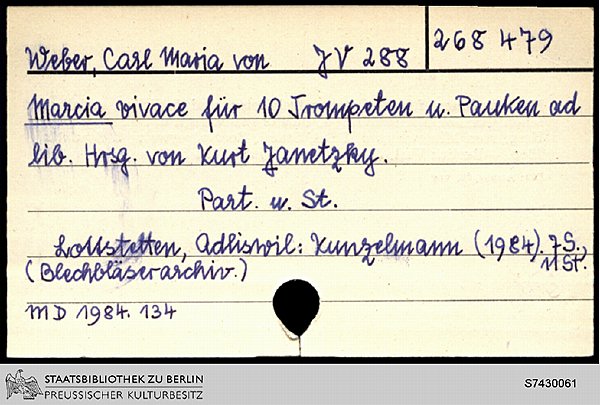 Weber, Carl Maria von JV 288
268 479
Marcia vivace für 10 Trompeten u. Pauken ad
lib. Hrsg. von Kurt Janetzky.
Part. u. St.
Lottstetten, Adliswil: Kunzelmann (1984). 7 S.,
11 St.
(Bläserarchiv.)
MD 1984. 134
STAATSBIBLIOTHEK ZU BERLIN
PREUSSISCHER KULTURBESITZ
S7430061